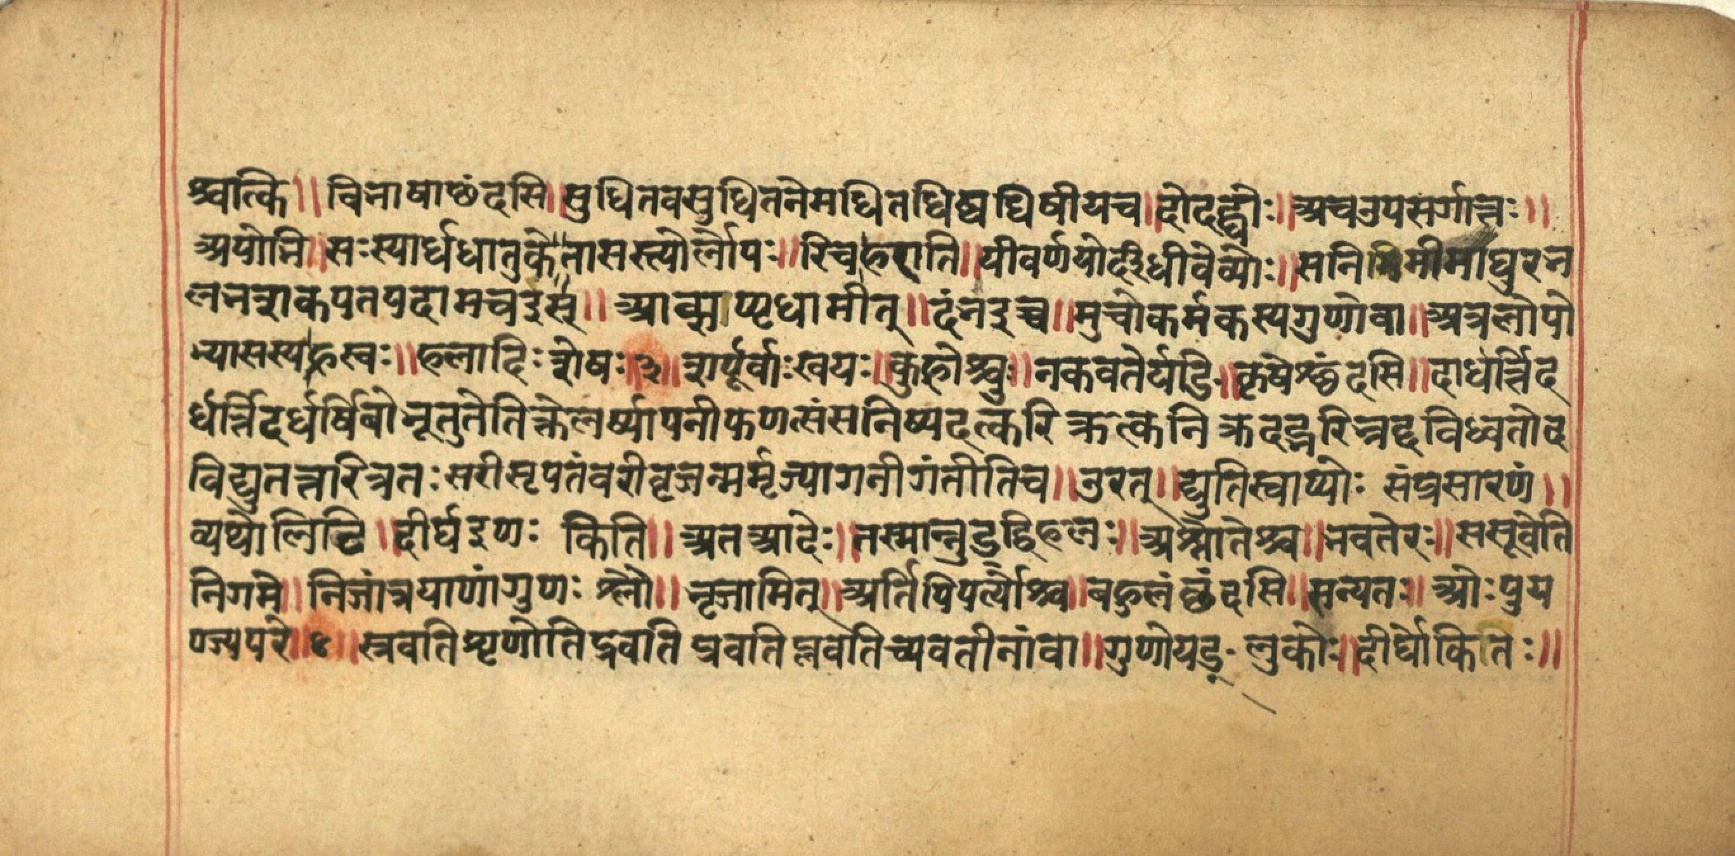 श्चत्कि॥ विभाषाछंदसि॥सुधितवसुधितनेमधितधिष्वधिषीयच॥दोदद्घोः॥अचउपसर्गात्तः॥
अपोभि॥सःस्यार्धधातुके॥तासस्त्योर्लोपः॥रिच॥हएति॥यीवर्णयोर्दीधीवेव्योः॥सनिमीमाघुरभ
लभशकपतपदामचइस्॥ आप्ज्ञप्यृधामीत्॥दंभइच्च॥मुचोकर्मकस्यगुणोवा॥अत्रलोपो
भ्यासस्य॥ह्रस्वः॥हलादिःशेषः॥३॥शर्पूर्वाःखयः॥कुहोश्चुः॥नकवतेर्यङि॥कृषेश्छंदसि॥दाधर्त्तिद
र्धर्त्तिदर्धर्षिबोभूतुतेतिक्तेलर्ष्यापनीफणत्संसनिष्यदत्करिक्रत्कनिक्रदद्भरिभ्रद्दविध्वतोद
विद्युतत्तरित्रतः सरीसृपतंवरीवृजन्मर्मृज्यागनीगंतीतिच॥उरत्॥द्युतिस्वाप्योः संप्रसारणं॥
व्यथोलिटि॥दीर्घइणः किति॥अतआदेः॥तस्मान्नुड्द्विहलः॥अश्नोतेश्च॥भवतेरः॥ससूवेति
निगमे॥निजांत्रयाणांगुणः श्लौ॥भृञामित्॥अर्तिपिपर्त्योश्च॥बहुलंछंदसि॥सन्यतः॥ओःपुय
ण्ज्यपरे॥४॥स्रवतिशृणोतिद्रवतिप्रवतिप्लवतिच्यवतीनांवा॥गुणोयङ्लुकोः॥दीर्घोकितः॥